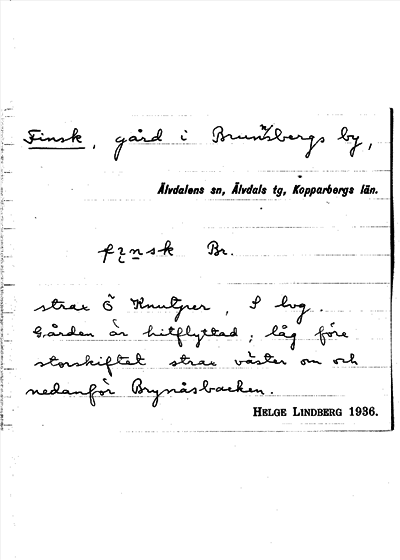 Finsk, gård i Brunnsbergs by,
Älvdalens sn, Älvdals tg, Kopparbergs län.
fɪnsk Br.
strax Ö Knutper, S lvg.
Gården är hitflyttad; låg före
storskiftet strax väster om och
nedanför Brynåsbacken.
HELGE LINDBERG 1936.